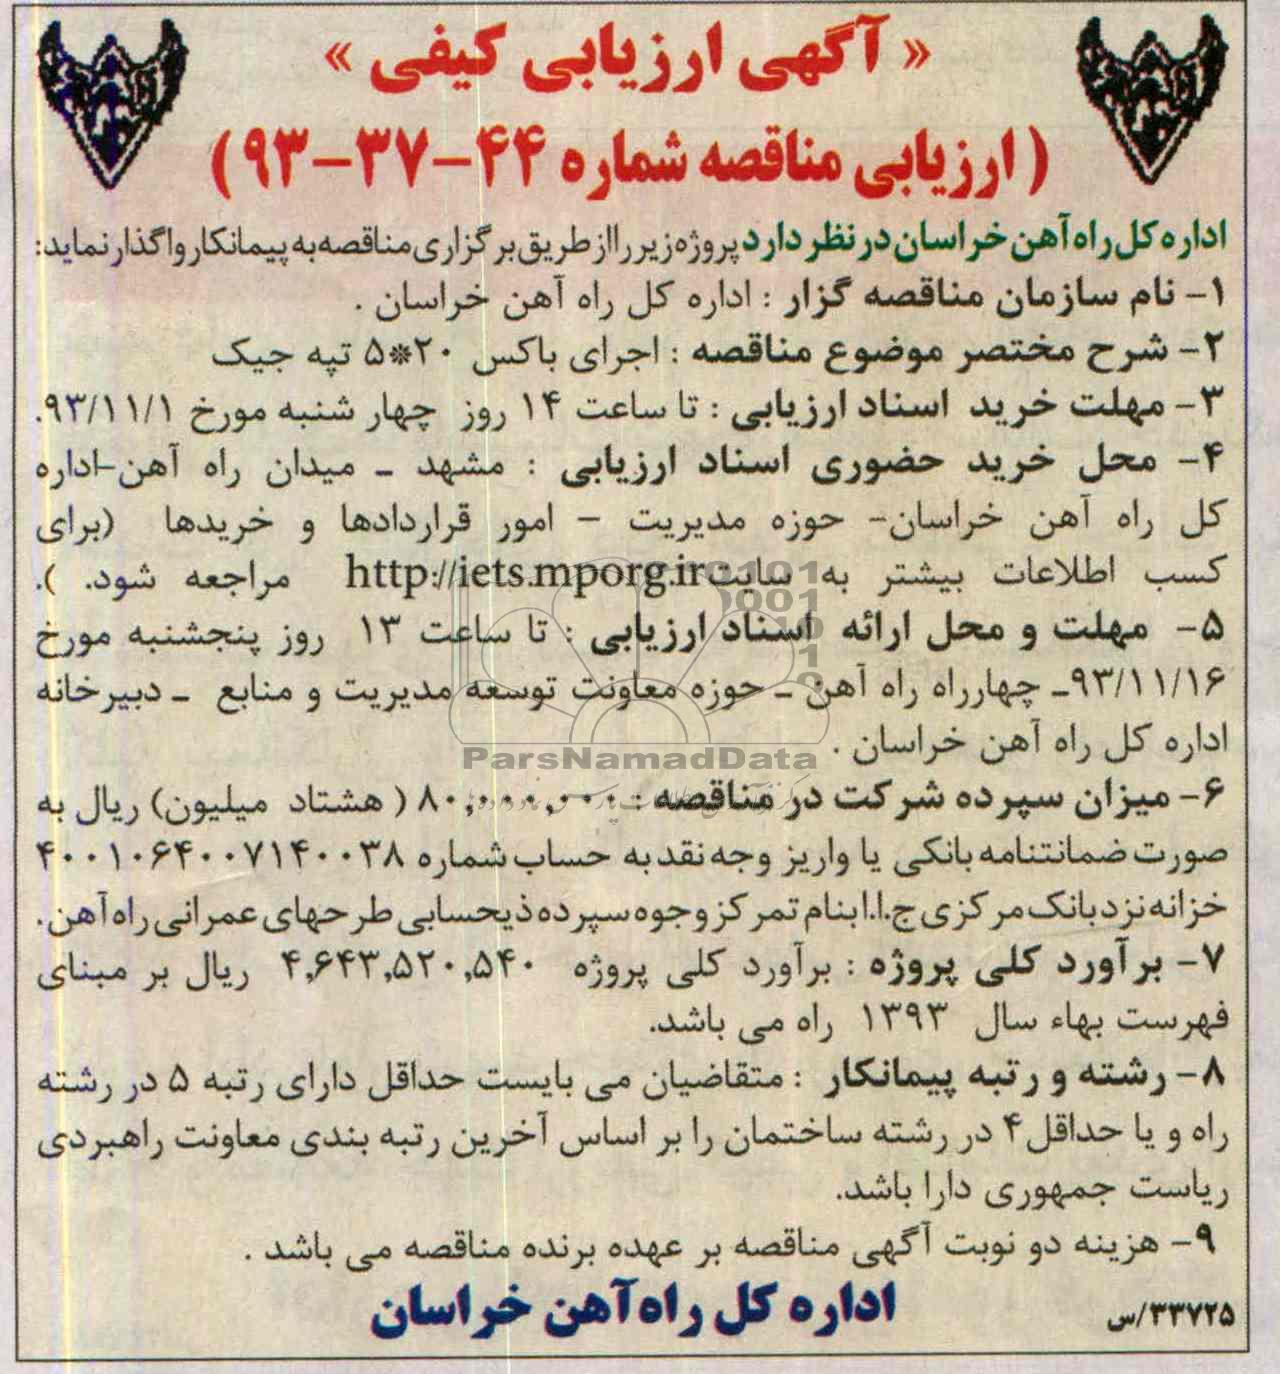 « آگهی ارزیابی کیفی »
( ارزیابی مناقصه شماره ۴۴-۳۷-۹۳)
اداره کل راه آهن خراسان در نظر دارد پروژه زیر را از طریق برگزاری مناقصه به پیمانکار واگذار نماید:
۱- نام سازمان مناقصه گزار : اداره کل راه آهن خراسان .
۲- شرح مختصر موضوع مناقصه : اجرای باکس ۲۰*۵ تپه جیک
۳- مهلت خرید اسناد ارزیابی : تا ساعت ۱۴ روز چهار شنبه مورخ ۹۳/۱۱/۱.
۴- محل خرید حضوری اسناد ارزیابی : مشهد ـ میدان راه آهن-اداره
کل راه آهن خراسان- حوزه مدیریت – امور قراردادها و خریدها (برای
کسب اطلاعات بیشتر به سایت http://iets.mporg.ir مراجعه شود. ).
۵- مهلت و محل ارائه اسناد ارزیابی : تا ساعت ۱۳ روز پنجشنبه مورخ
۹۳/۱۱/۱۶ـ چهارراه راه آهن ـ حوزه معاونت توسعه مدیریت و منابع ـ دبیرخانه
اداره کل راه آهن خراسان .
ParsNamadData
۶- میزان سپرده شرکت در مناقصه : ۸۰,۰۰۰,۰۰۰ ( هشتاد میلیون) ریال به
صورت ضمانتنامه بانکی یا واریز وجه نقد به حساب شماره ۴۰۰۱۰۶۴۰۰۷۱۴۰۰۳۸
خزانه نزد بانک مرکزی ج.ا.ا بنام تمرکز وجوه سپرده ذیحسابی طرحهای عمرانی راه آهن.
۷- برآورد کلی پروژه : برآورد کلی پروژه ۴,۶۴۳,۵۲۰,۵۴۰ ریال بر مبنای
فهرست بهاء سال ۱۳۹۳ راه می باشد.
۸- رشته و رتبه پیمانکار : متقاضیان می بایست حداقل دارای رتبه ۵ در رشته
راه و یا حداقل ۴ در رشته ساختمان را بر اساس آخرین رتبه بندی معاونت راهبردی
ریاست جمهوری دارا باشد.
۹- هزینه دو نوبت آگهی مناقصه بر عهده برنده مناقصه می باشد .
اداره کل راه آهن خراسان
۳۳۷۲۵/س